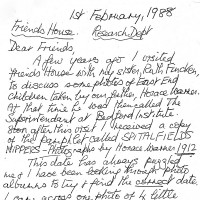 1st February, 1988
Friends House. Research Dept
Dear Friends,
A few years ago I visited
Friends House with my sister, Ruth Finchen,
to discuss some photos of East End
Children taken by our father, Horace Warner.
At that time he was then called The
Superintendant at Bedford Institute
Soon after this visit I received a copy
of the pamphlet called SPITALFIELDS
NIPPERS - Photographs by Horace Warner 1912
This date has always puzzled
me & I have been looking through photo
albums to try & find the correct date.
I came across one photo of a little